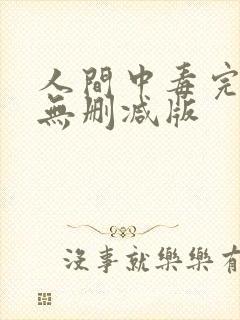 人間中毒完
無删减版
沒事就樂樂有